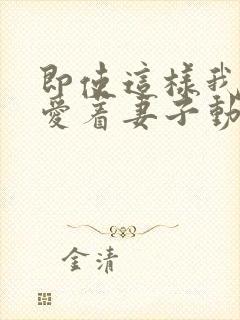 即使這樣我
愛着妻子動
金清